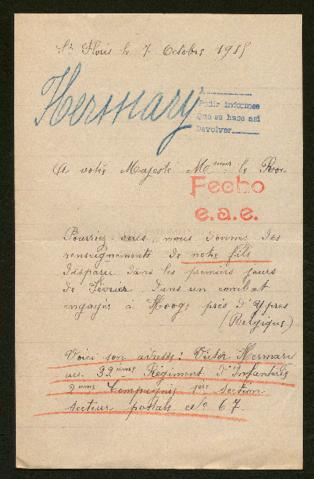 St Floris le 7 Octobre 1915
Hermary
A
Pedir informes
Que se hace asi
Devolver
A votre Majesté Mr le Roi
Fecho
e.a.e.
Pourriez-vous nous donner des
renseignements de notre fils
disparu dans les premiers jours
de Février dans un combat
engagés à Hoog, près d'Ypres
(Belgique)
Voici son adresse: Victor Hermary
au 33ème Régiment d'Infanterie
2ème Compagnie 1ère section
secteur postale No 67.